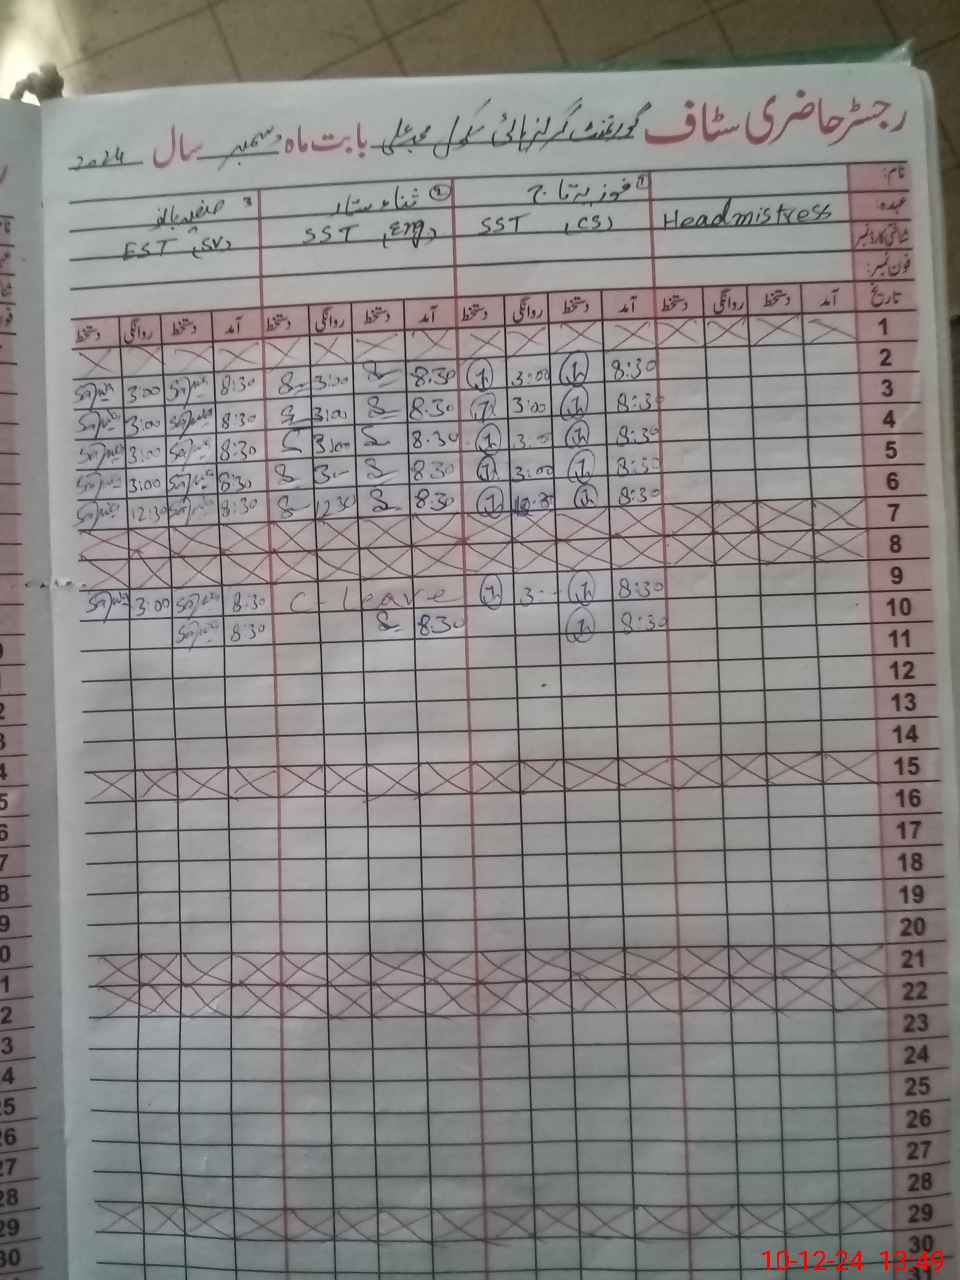 رجسٹر حاضری سٹاف گورنمنٹ گرلز ہائی سکول محمد علی بابت ماہ دسمبر سال 2024
نام: ① فوزیہ تاج ② ثناء ستار 3
عہدہ: Headmistress SST (CS) SST (Eng) EST (SV)
شناختی کارڈ نمبر
فون نمبر:
تاریخ آمد دستخط روانگی دستخط آمد دستخط روانگی دستخط آمد دستخط روانگی دستخط آمد دستخط روانگی دستخط
1
2 8:30 3:00 8:30 3:00 8:30 3:00
3 8:30 3:00 8:30 3:00 8:30 3:00
4 8:30 3:00 8:30 3:00 8:30 3:00
5 8:30 3:00 8:30 3:00 8:30 3:00
6 8:30 8:30 12:30 8:30 12:30
7
8
9 8:30 3:00 C-Leave 8:30 3:00
10 8:30 8:30 8:30
11
12
13
14
15
16
17
18
19
20
21
22
23
24
25
26
27
28
29
30
10-12-24 13:49